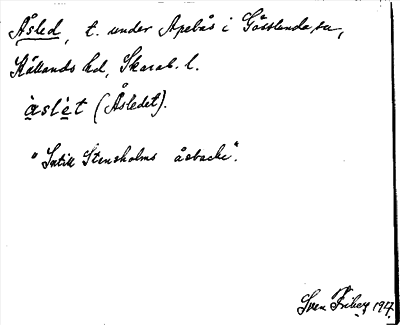 Åsled, t. under Apebås i Gösslunda sn,
Kållands hd, Skarab. l.
àslèt (Åsledet).
"Intill Stensholms åsbacke".
Sven Friberg 1917.